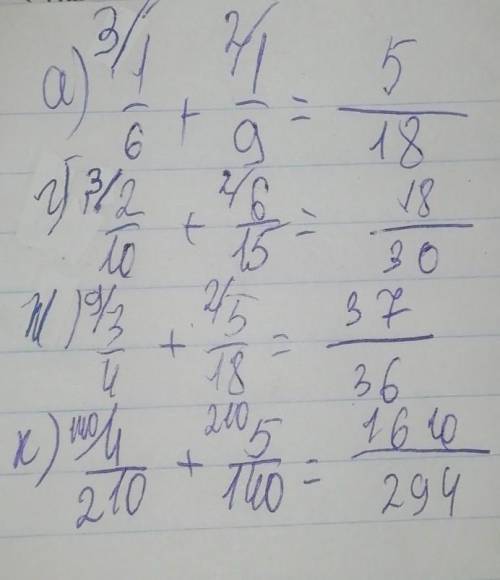 а) ³/1/6 + ²/1/9 = 5/18
г) ³/2/10 + ²/6/15 = 18/30
ж) ⁹/3/4 + ²/5/18 = 37/36
к) ¹⁴⁰/4/210 + ²¹⁰/5/140 = 1610/294